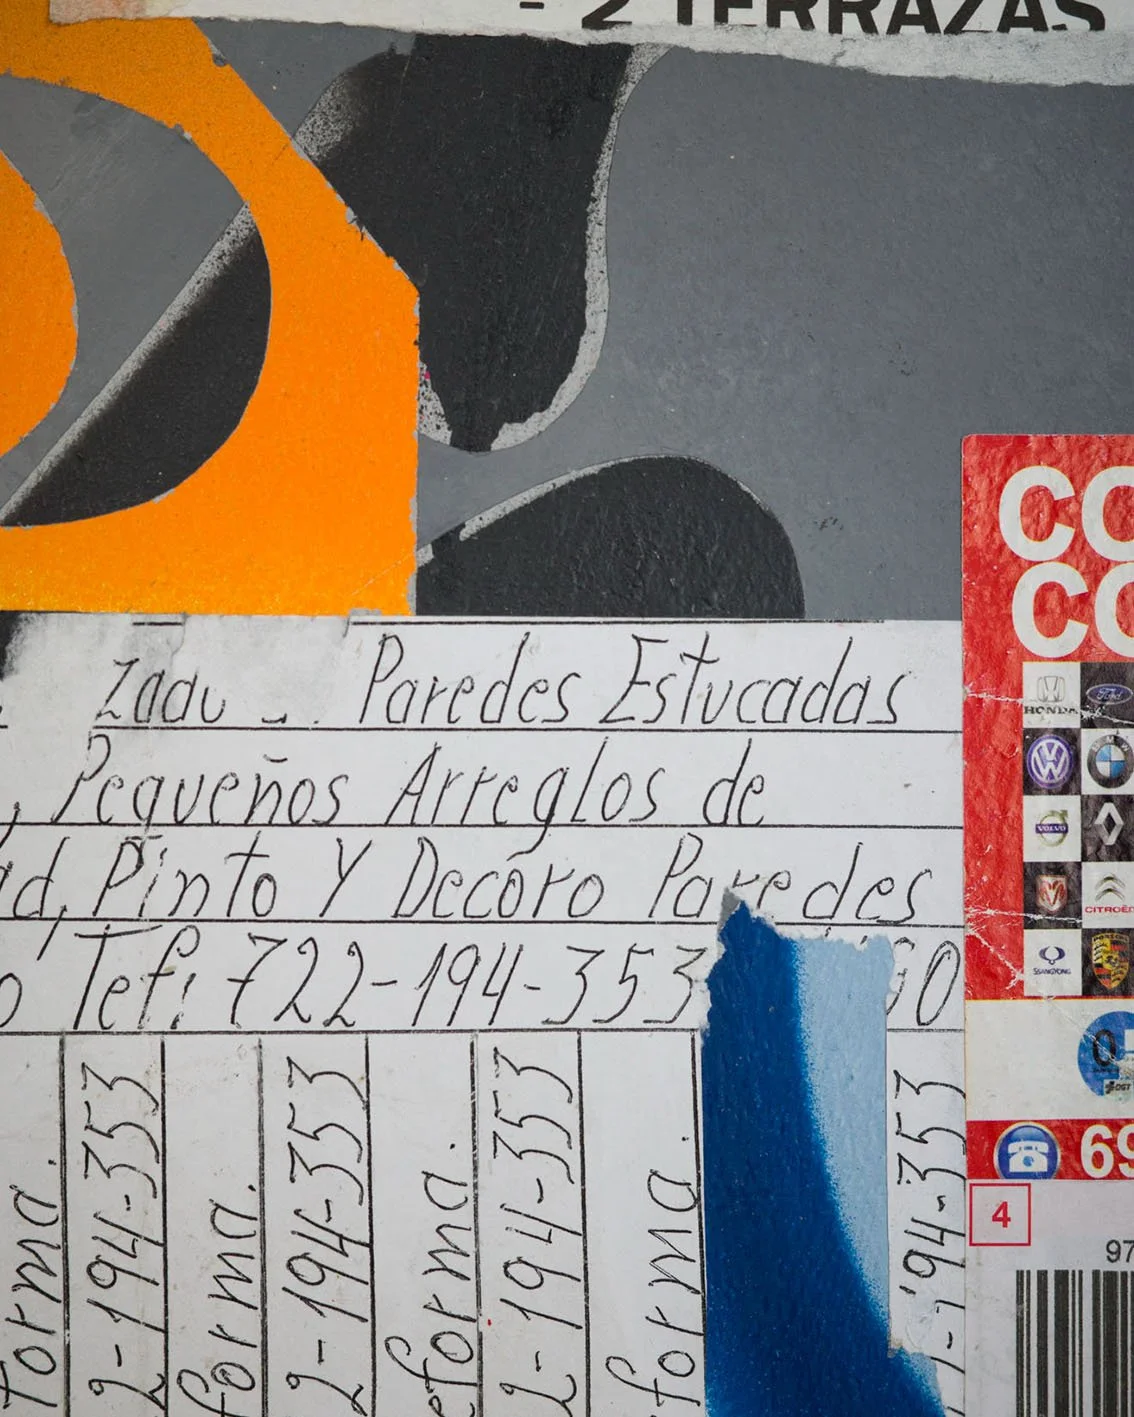 - 2 TERRAZAS
CO
CO
Paredes Estucadas
HONDA Ford
, Pequeños Arreglos de
VOLVO
ad, Pinto Y Decoro Paredes
CITROËN
PORSCHE
SSANGYONG
o Tef: 722-194-353
69
4
97
forma.
2-194-353
forma.
2-194-353
eforma.
2-194-353
forma.
-194-353